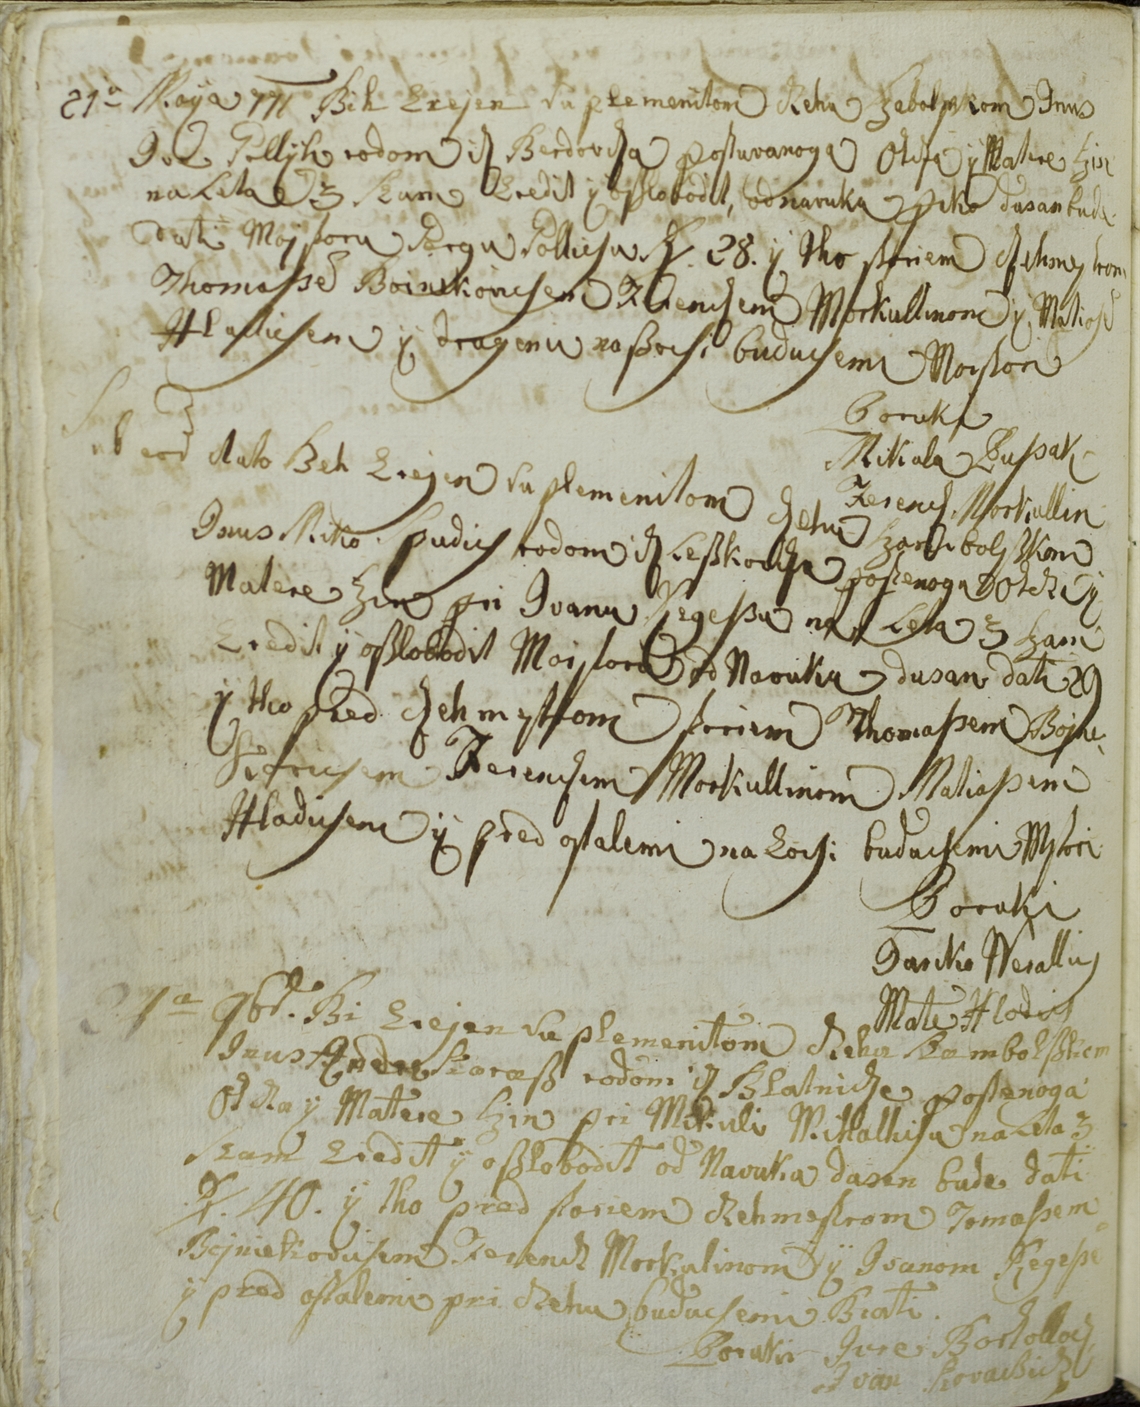 21a Maya 771 Bih Erejen vu plemenitom Czehu Szabolszkom Inus
Ivo Pollyh rodom iz Berdovcza postuvanoga Otcza y Matere Szin
na Leta 3 kam Eredit y oszlobodit, od navuka duxan bude
dati Mojstoru Jurgu Pollichu fl. 28. y tho stariem Czehmestrom
Thomassem Boinikovichem Ferenczem Morkullinom y Matiassem
Hladichem y drugemi nazochi buduchemi Mojstori
Poruki
Mikula Pussak
Ferencz Morkullin
dato Beh Erejen vu plemenitom Czehu Szambolszkom
Inus Miko Pudich rodom iz Leszkovcza postenoga Otcza y
Matere Szin pri Ivanu Kegessu na Leta 3 Szam
Eredit y oszlobodit Mojstoru od Navuka duxan dati 29
y tho pred Czehmestrom stariem Thomassem Bojne
kovichem Ferenczem Morkullinom Matiassem
Hladichem y pred ostalemi nazochi buduchemi Mestri
Poruki
Janko Wesallich
Mate Hlodich
1a 9br. Bi Erejen vu plemenitom Czehu Szambolszkom
Inus Andre Karass rodom iz Blatnicze postenoga
Otcza y Matere Szin pri Mikuli Mihallichu na Leta 3
Szam Eredit y oszlobodit od Navuka duxen bude dati
fl. 40. y tho pred stariem Czehmestrom Tomassem
Bojniekovichem Ferencz Morkulinom y Ivanom Kegess
y pred ostalemi pri Czehu buduchemi Brati.
Poruki Jure Bochollach
Ivan Kovachich